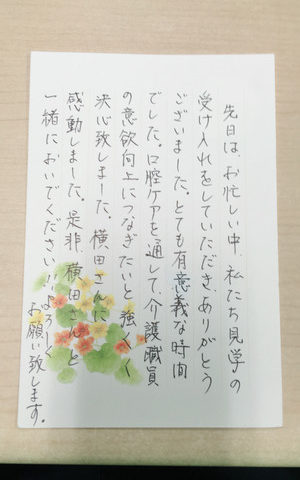 先日は お忙しい中 私たち見学の
受け入れをしていただき、ありがとう
ございました。とても有意義な時間
でした。口腔ケアを通して、介護職員
の意欲向上につなぎたいと強く
決心致しました。横田さんに
感動しました。是非、横田さんと
一緒においでください!!よろしく
お願い致します。